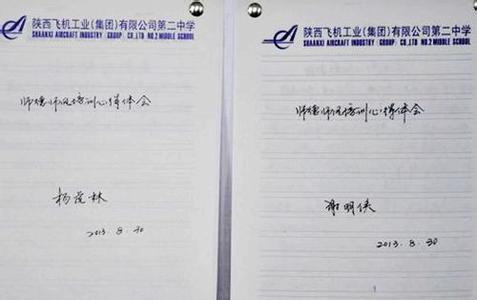 陕西飞机工业(集团)有限公司第二中学
SHAANXI AIRCRAFT INDUSTRY (GROUP) CO.,LTD NO.2 MIDDLE SCHOOL
师德师风培训心得体会
林
2013.8.30
陕西飞机工业(集团)有限公司第二中学
SHAANXI AIRCRAFT INDUSTRY (GROUP) CO.,LTD NO.2 MIDDLE SCHOOL
师德师风培训心得体会
谢明侠
2013.8.30